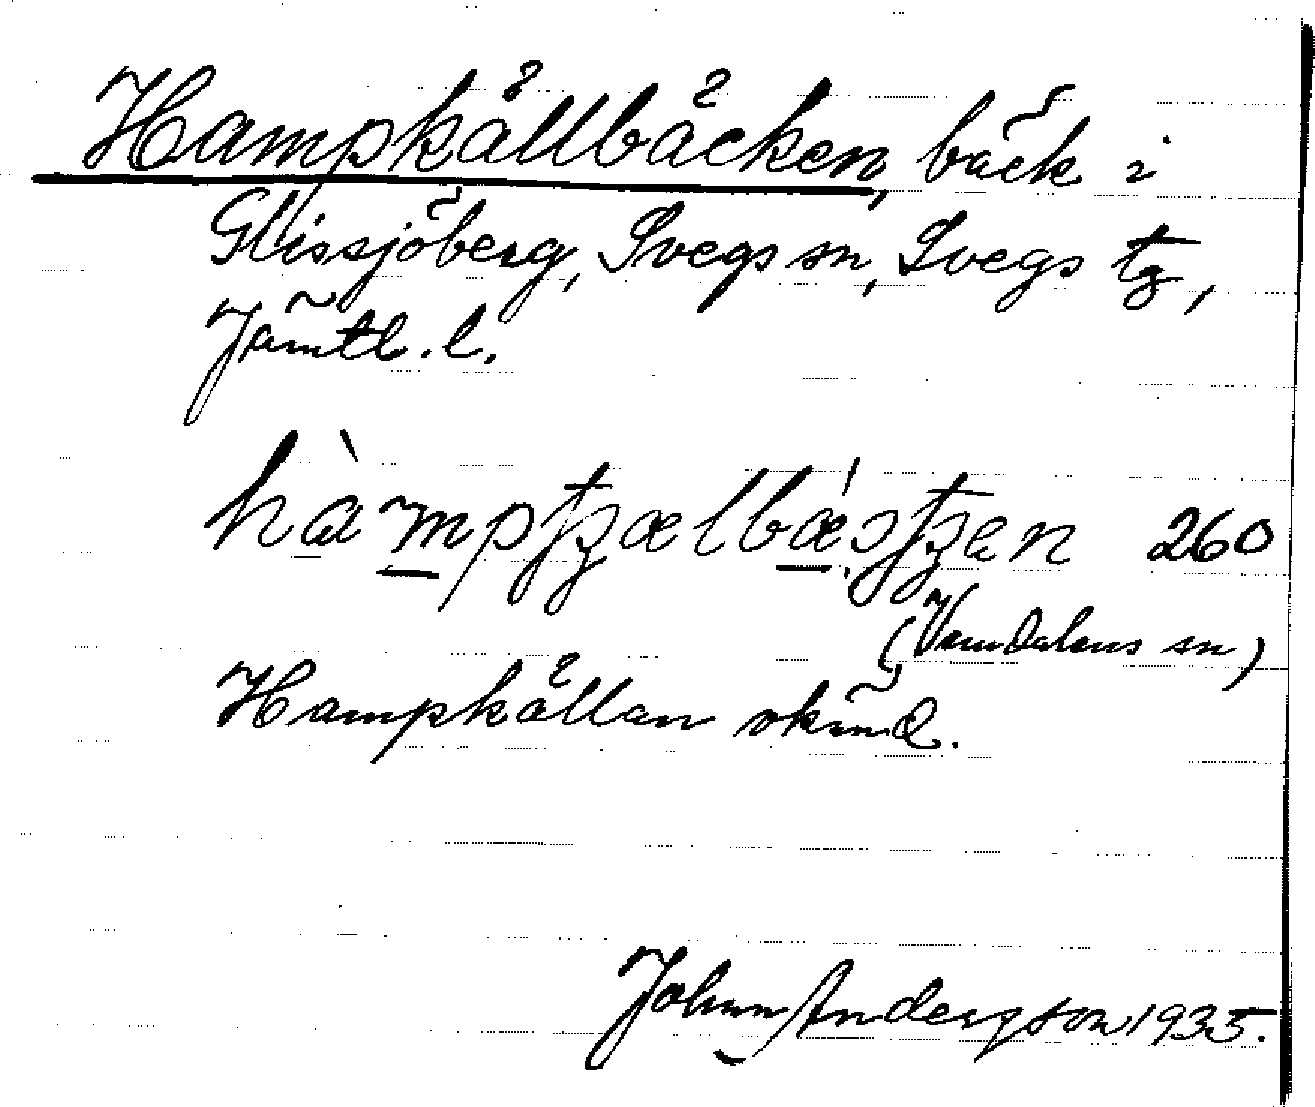 Hampkällbäcken, bäck i
Glissjöberg, Svegs sn, Svegs tg,
Jämtl. l.
hàmpꞎælbǽꞎen 260
(Vemdalens sn)
Hampkällan okänd.
Johan Anderzson 1935.